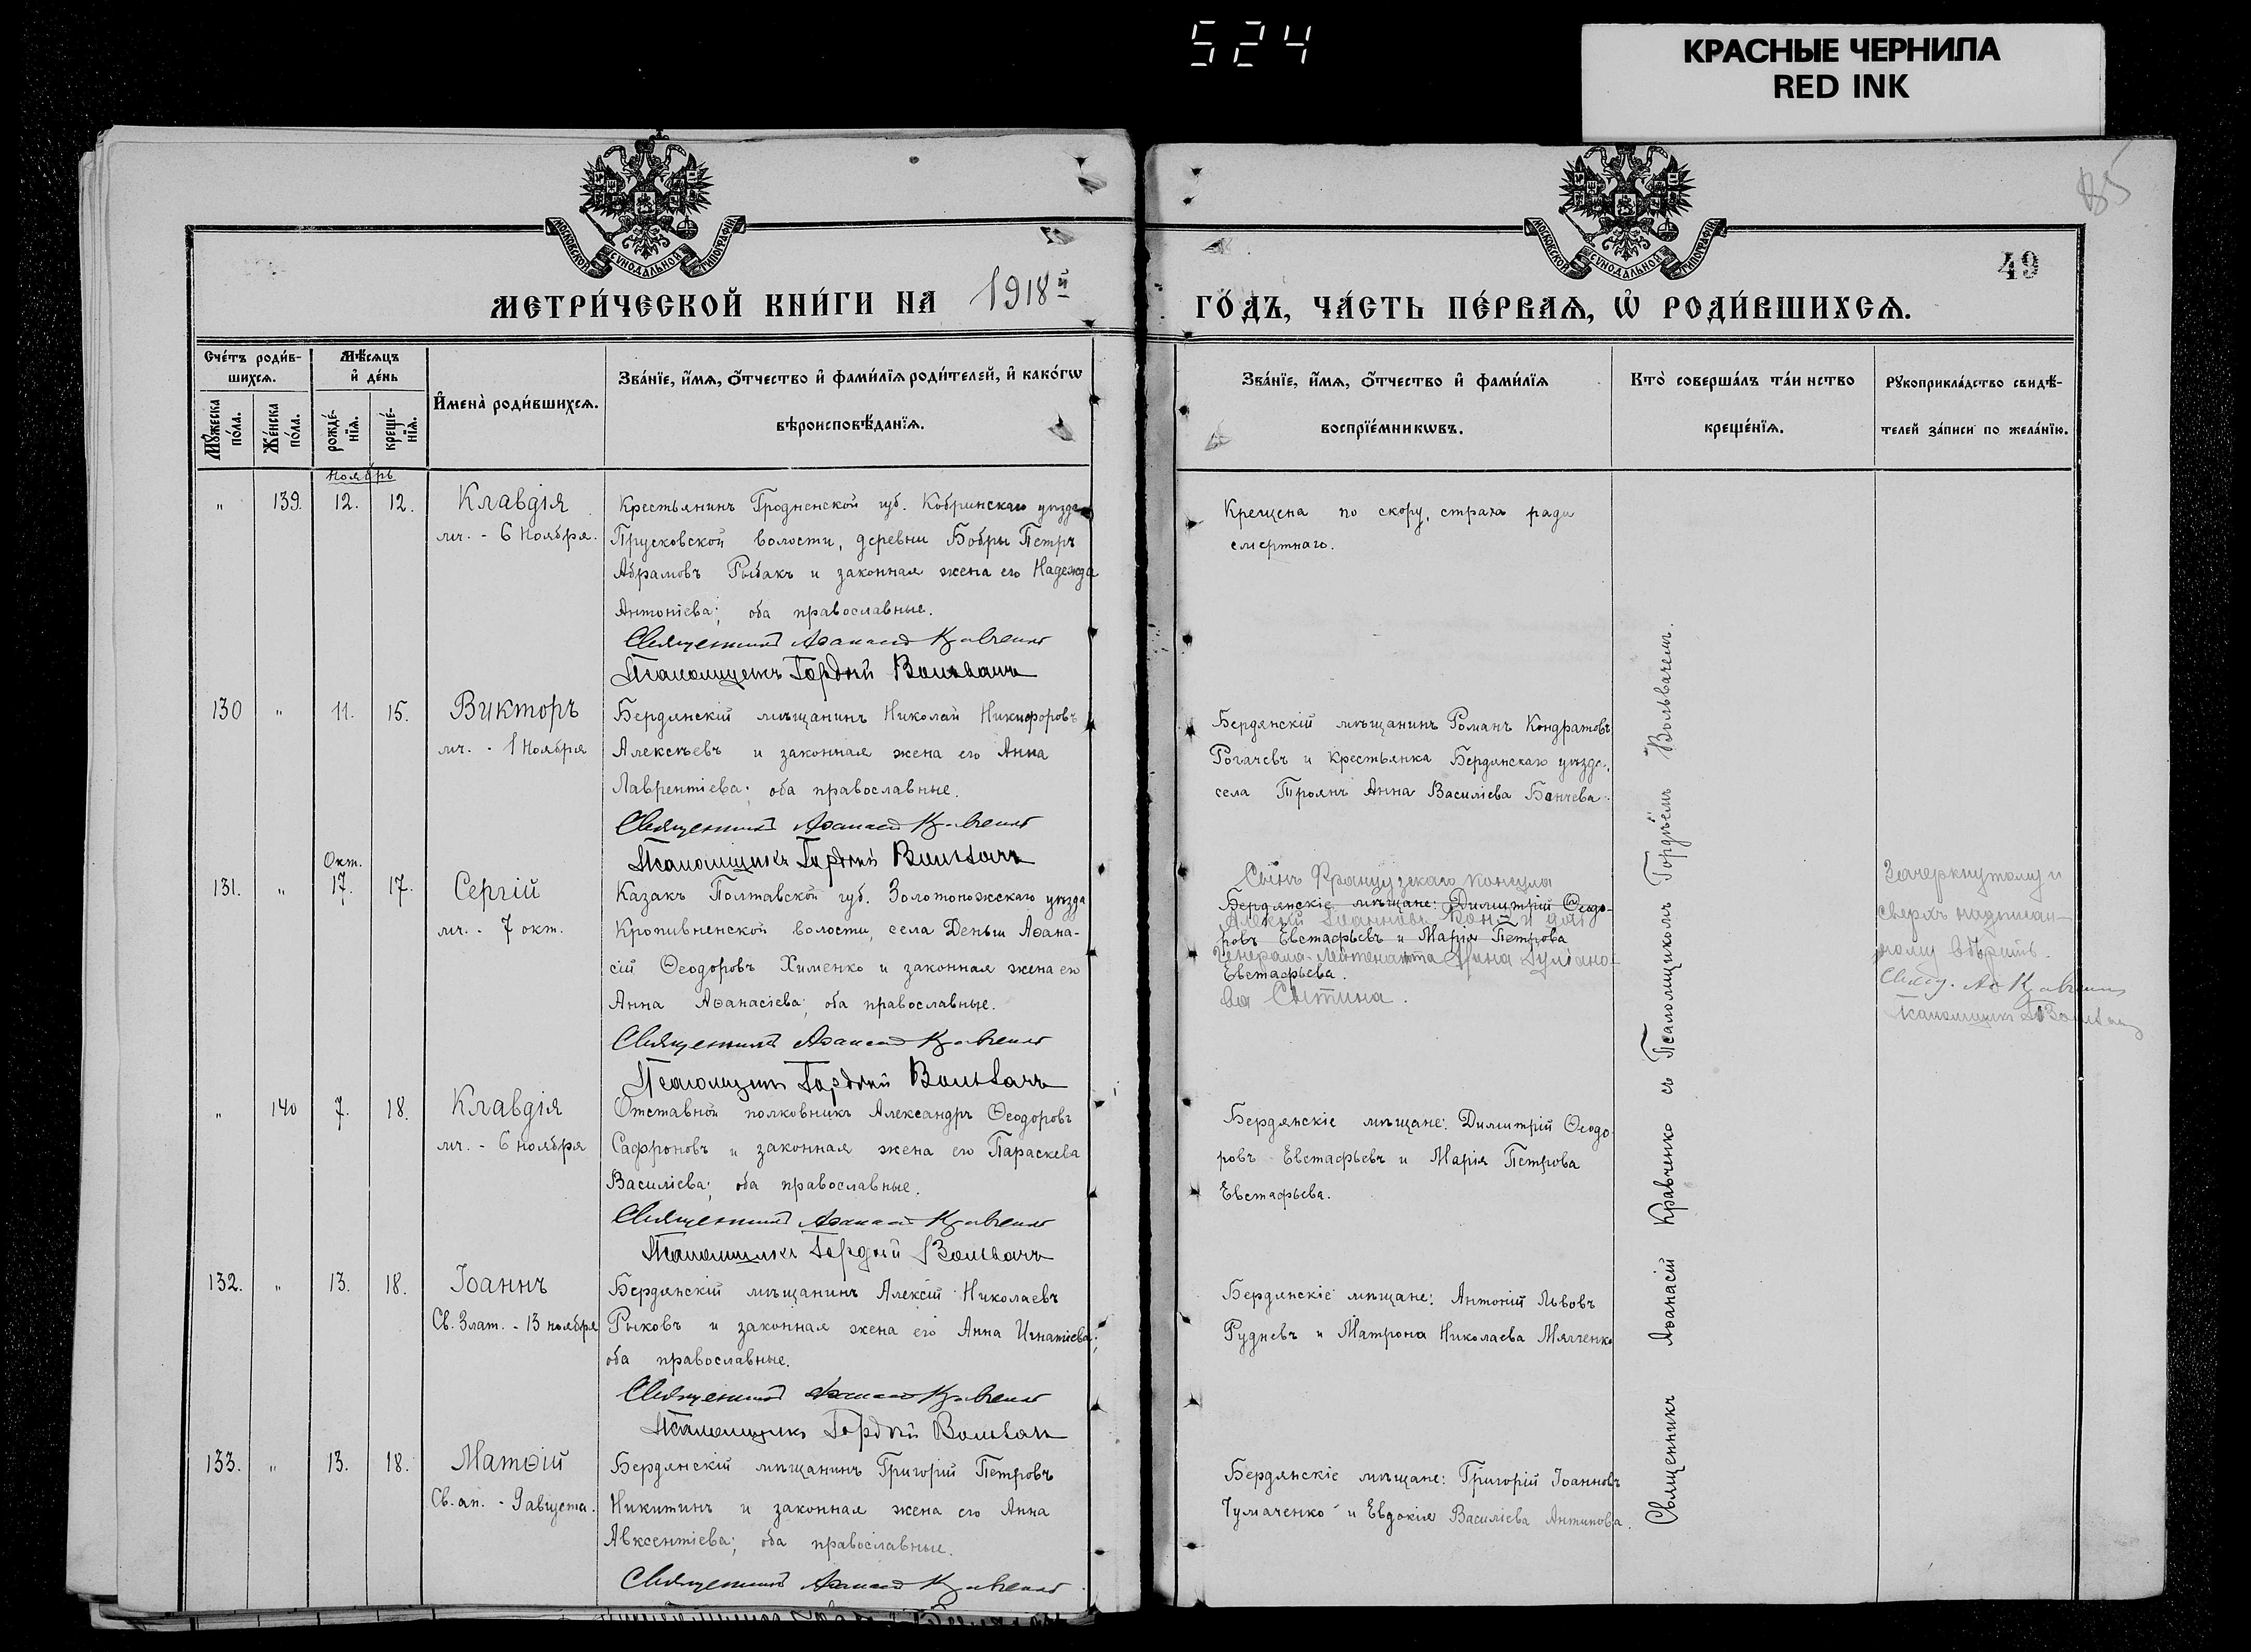 524
КРАСНЫЕ ЧЕРНИЛА
RED INK
85
49
МОСКОВСКОЙ СѴНОДАЛЬНОЙ ТИПОГРАФІИ
МОСКОВСКОЙ СѴНОДАЛЬНОЙ ТИПОГРАФІИ
МЕТРИ́ЧЕСКОЙ КНИ́ГИ НА 1918й
ГО́ДЪ, ЧА́СТЬ ПЕ́РВАѦ, Ѡ҆ РОДИ́ВШИХСѦ.
Сче́тъ роди́в-
шихсѧ.
Мꙋжеска по́ла.
Же́нска по́ла.
Мѣ́сѧцъ
и҆ де́нь
рожде́-
нїѧ.
креще́-
нїѧ.
И҆мена̀ роди́вшихсѧ.
Зва́нїе, и҆́мѧ, ѻ҆́тчество и҆ фами́лїѧ роди́телей, и҆ како́гѡ
вѣроисповѣ́данїѧ.
Зва́нїе, и҆́мѧ, ѻ҆́тчество и҆ фами́лїѧ
воспрїе́мникѡвъ.
Кто̀ соверша́лъ та́инство
креще́нїѧ.
Рꙋкоприкла́дство свидѣ́-
телей за́писи по жела́нїю.
Ноябрь
" 139. 12. 12. Клавдія
мч. - 6 Ноября.
Крестьянинъ Гродненской губ. Кобринскаго уѣзда
Прусковской волости, деревни Бобры Петръ
Абрамовъ Рыбакъ и законная жена его Надежда
Антоніева; оба православные.
Священникъ Аѳанасій Кравченко
Псаломщикъ Гордѣй Вольвачъ
Крещена по скору, страха ради
смертнаго.
130 " 11. 15. Викторъ
мч. - 1 Ноября
Бердянскій мѣщанинъ Николай Никифоровъ
Алексѣевъ и законная жена его Анна
Лаврентіева; оба православные.
Священникъ Аѳанасій Кравченко
Псаломщикъ Гордѣй Вольвачъ
Бердянскій мѣщанинъ Романъ Кондратовъ
Рогачевъ и крестьянка Бердянскаго уѣзда,
села Троянъ Анна Василіева Банчева.
Окт.
131. " 17. 17. Сергій
мч. - 7 окт.
Казакъ Полтавской губ. Золотоножскаго уѣзда
Кропивненской волости, села Деньги Аѳана-
сій Ѳеодоровъ Хименко и законная жена его
Анна Аѳанасіева; оба православные.
Священникъ Аѳанасій Кравченко
Псаломщикъ Гордѣй Вольвачъ
Сынъ Французскаго консула
Бердянскіе мѣщане: Димитрій Ѳеодо-
Алексѣй Іоанновъ
ровъ Евстафьевъ и Марія Петрова
Генерала-Лейтенанта
Евстафьева.
ва Сытина.
Зачеркнутому и
сверхъ надписан-
ному вѣрить.
Свящ. Аѳ Кравченко
Псаломщикъ Г Вольвачъ
" 140 7. 18. Клавдія
мч. - 6 ноября
Отставной полковникъ Александръ Ѳеодоровъ
Сафроновъ и законная жена его Параскева
Василіева; оба православные.
Священникъ Аѳанасій Кравченко
Псаломщикъ Гордѣй Вольвачъ
Бердянскіе мѣщане: Димитрій Ѳеодо-
ровъ Евстафьевъ и Марія Петрова
Евстафьева.
132. " 13. 18. Іоаннъ
Св. Злат. - 13 ноября
Бердянскій мѣщанинъ Алексій Николаевъ
Рыковъ и законная жена его Анна Игнатіева;
оба православные.
Священникъ Аѳанасій Кравченко
Псаломщикъ Гордѣй Вольвачъ
Бердянскіе мѣщане: Антоній Львовъ
Рудневъ и Матрона Николаева Мягченко
133. " 13. 18. Матѳій
Св. ап. - 9 августа.
Бердянскій мѣщанинъ Григорій Петровъ
Никитинъ и законная жена его Анна
Авксентіева; оба православные.
Священникъ Аѳанасій Кравченко
Бердянскіе мѣщане: Григорій Іоанновъ
Чумаченко и Евдокія Василіева Антипова.
Священникъ Аѳанасій Кравченко съ Псаломщикомъ Гордѣемъ Вольвачемъ.